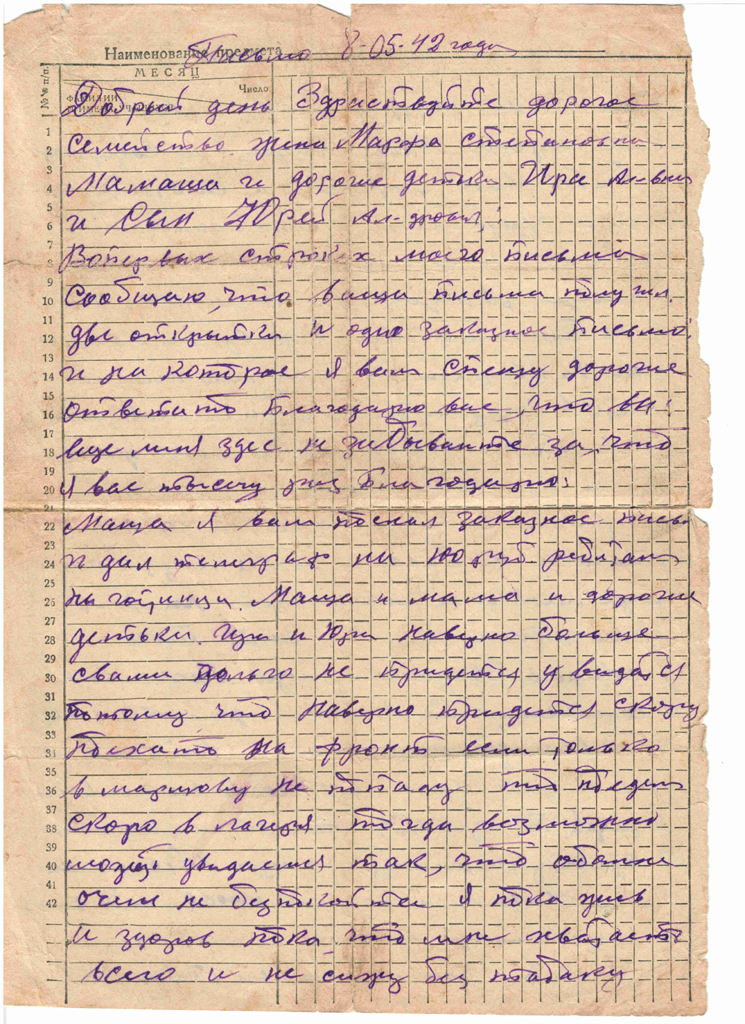 Наименование предмета
Письмо 8-05-42 года
МЕСЯЦ
№№ п/п.
Число
Добрый день Здраствуйте дорогое
семейство жена Марфа Степановна
Мамаша и дорогие детьки Ира Ал-вна
и Сын Юрей
Вопервых строках моего письма
Сообщаю, что ваши письма получил
две открытки и одно заказное письмо
и на которое я вам спешу дорогие
ответить благодарю вас, что вы
еще меня здес не забываите за, что
я вас тысячу раз благодарю:
Маша я вам послал заказное
и дал на ребятам
на гостинци. Маша и мама и дорогие
детьки. Ира и Юра наверно больше
свами долго не придется увидатся
потому что наверно придется скоро
поехать на фронт если только
в не попаду то поедем
скоро в лагеря тогда возможно
может увидаемся так, что обомне
очен не безпокойтеся я пока жив
и здоров пока, что мне хватает
всего и не сижу без табаку
1
2
3
4
5
6
7
8
9
10
11
12
13
14
15
16
17
18
19
20
21
22
23
24
25
26
27
28
29
30
31
32
33
34
35
36
37
38
39
40
41
42